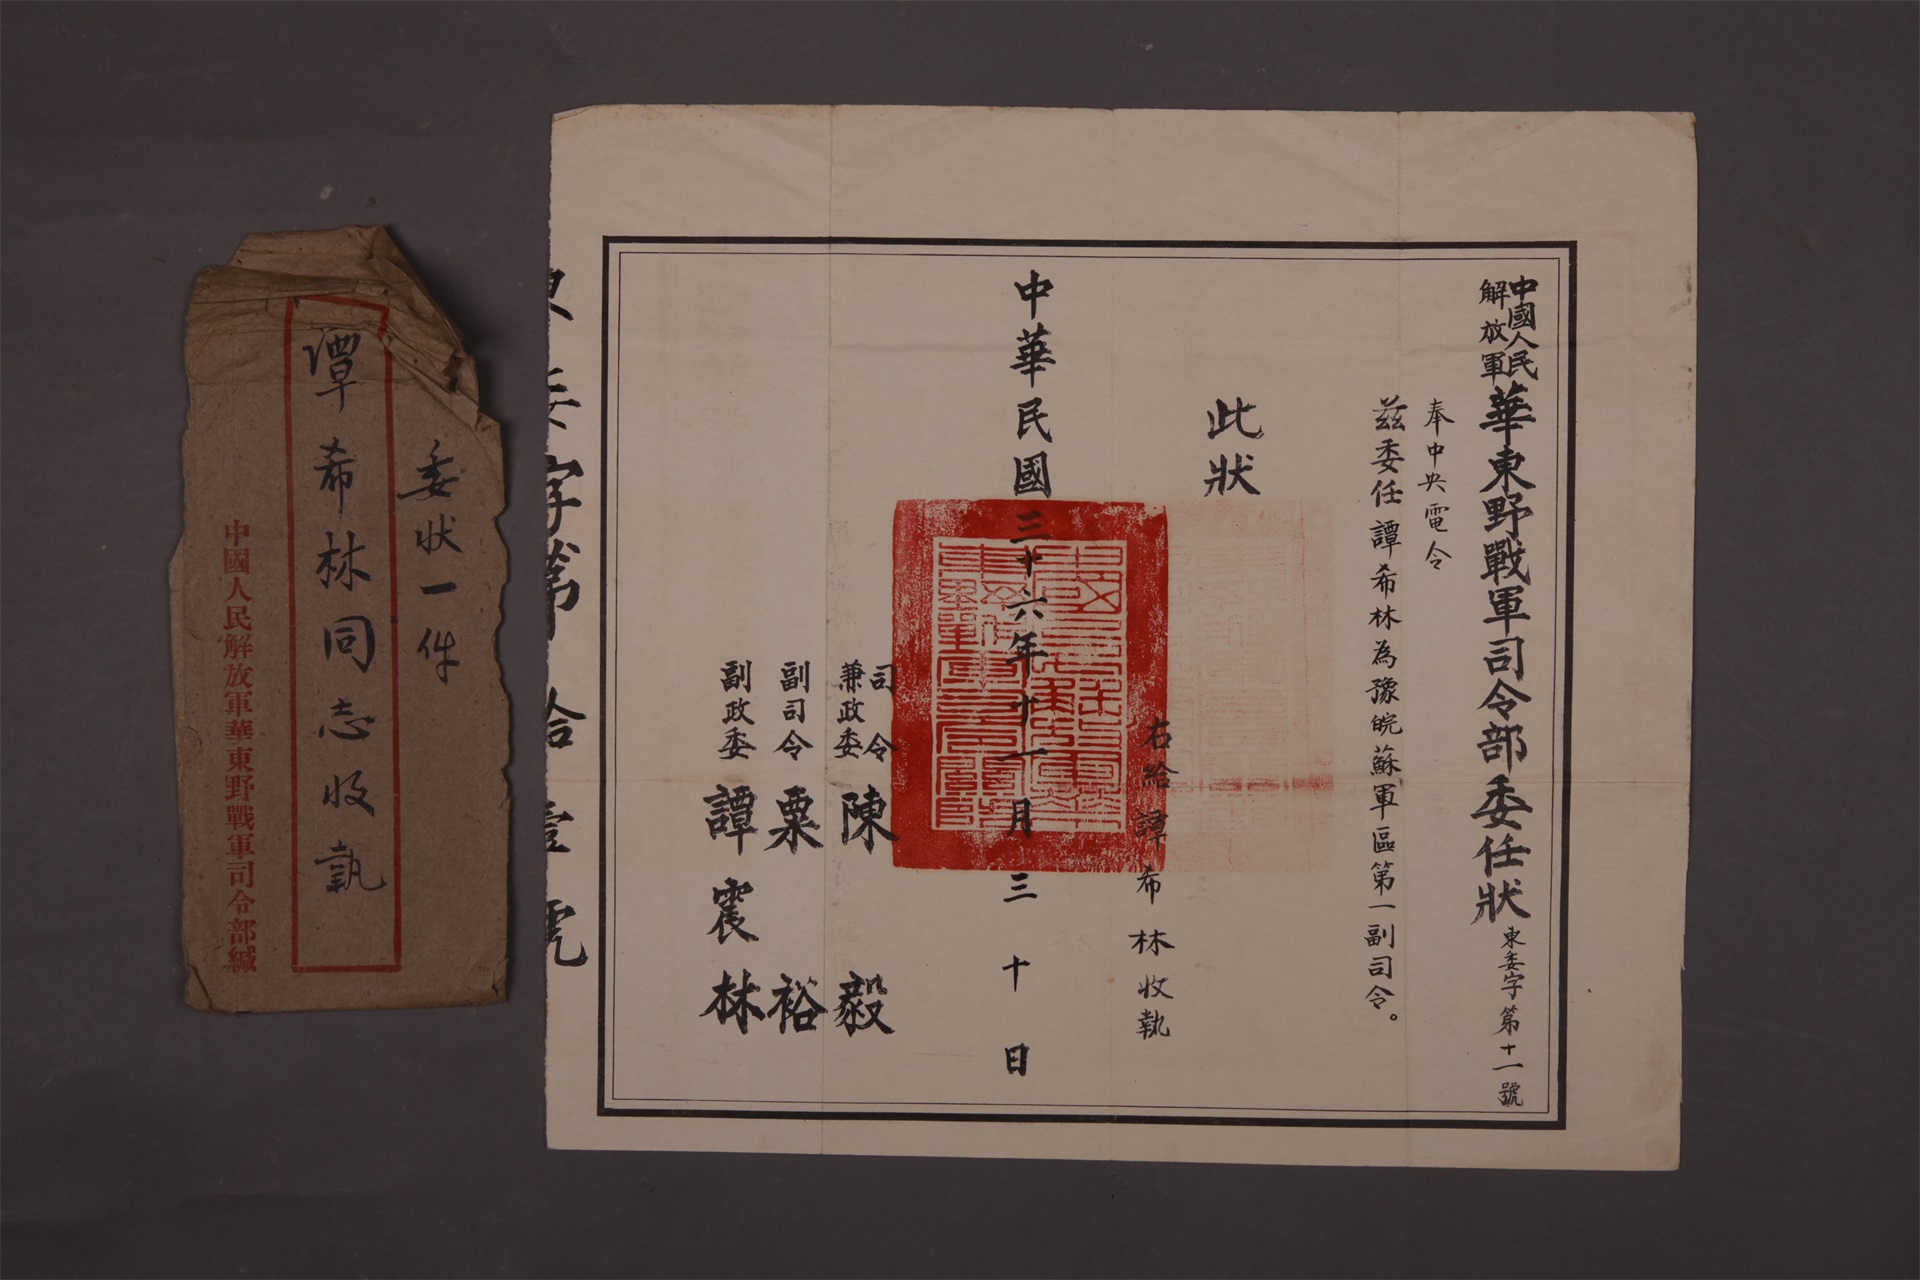 中國人民解放軍華東野戰軍司令部委任狀 東委字第十一號
奉中央電令
茲委任譚希林為豫皖蘇軍區第一副司令。
此狀
右給譚希林收執
中華民國三十六年十一月三十日
司令兼政委 陳毅
副司令 粟裕
副政委 譚震林
東委字第拾壹號
委状一件
譚希林同志收執
中國人民解放軍華東野戰軍司令部緘